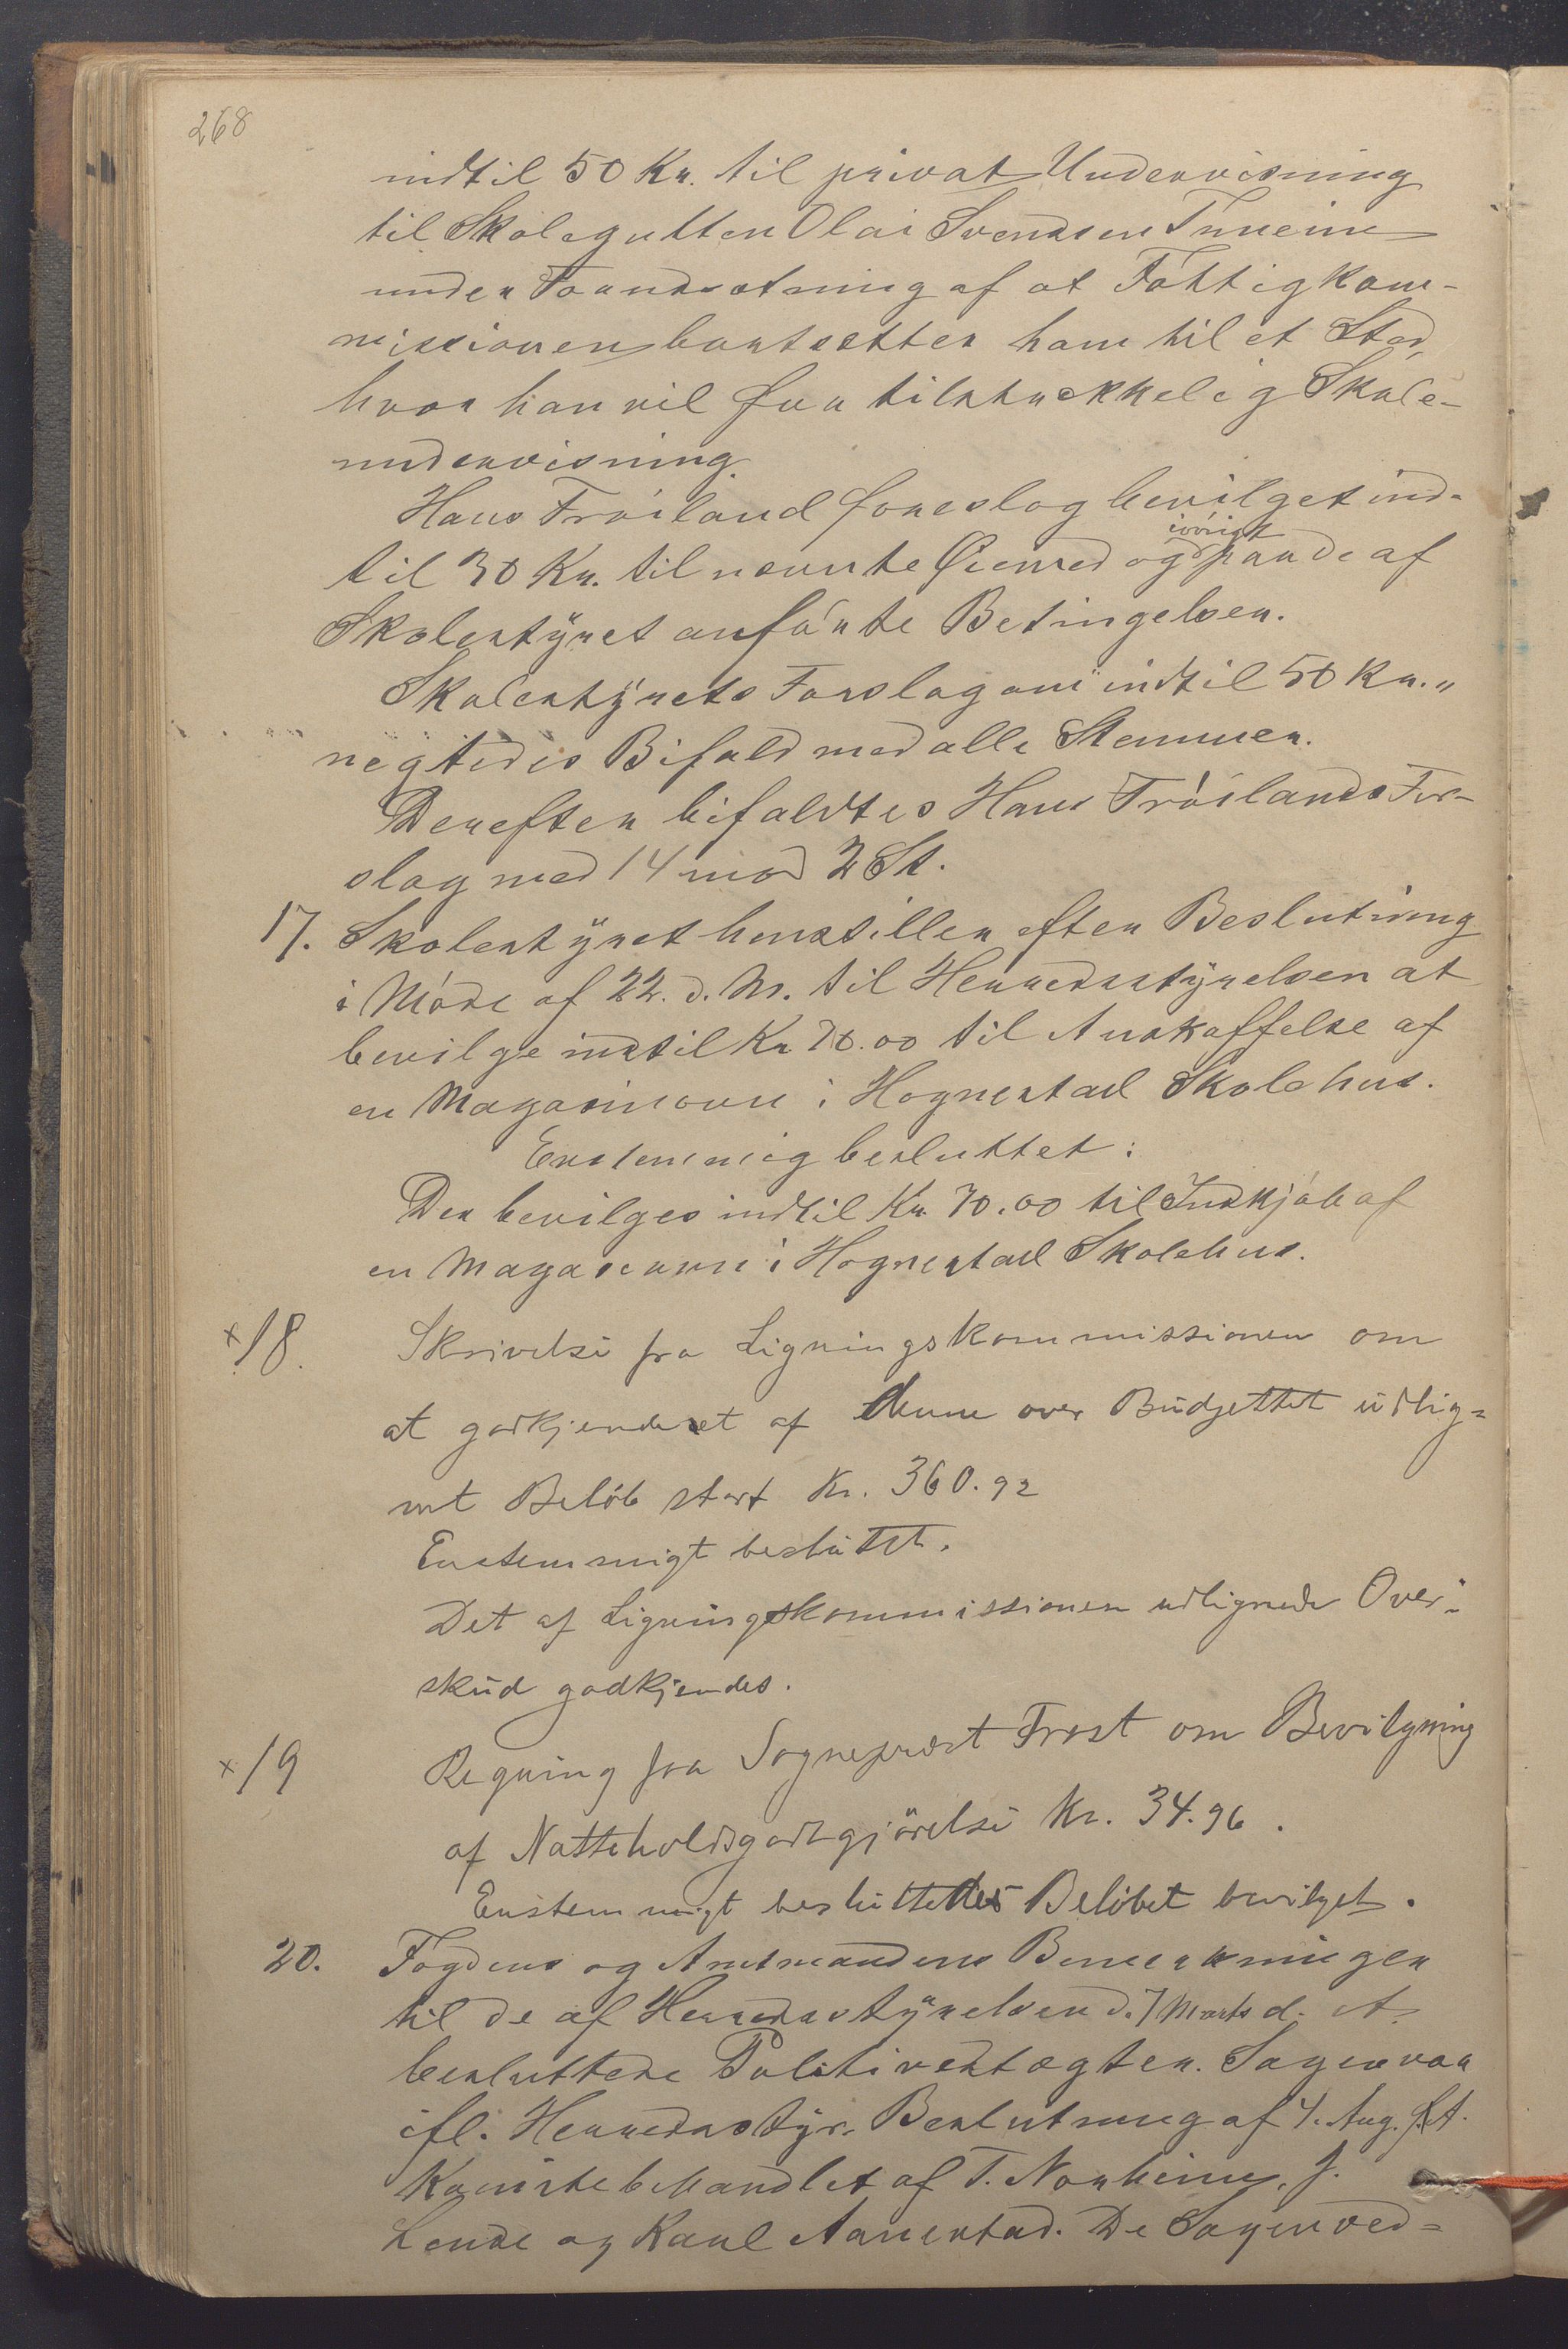 268
indtil 50 Kr. til privat Undervisning
til Skolegutten Olai Svendsen Tuneim
under Forudsætning af at Fattigkom-
missionen bortsætter ham til et Sted,
hvor han vil faa tilstrækkelig Skole-
undervisning.
Hans Fröiland foreslog bevilget ind-
til 30 Kr. til nævnte Øiemed og iövrigt paa de af
Skolestyret anförte Betingelser.
Skolestyrets Forslag om indtil 50 Kr. "
negtedes Bifald med alle Stemmer.
Derefter bifaldtes Hans Fröilands For-
slag med 14 mod 2 St.
17. Skolestyret henstiller efter Beslutning
i Möde af 22. d. M. til Herredsstyrelsen at
bevilge indtil Kr 70.00 til Anskaffelse af
en Magasinovn i Hognestad Skolehus.
Enstemmig besluttet:
Der bevilges indtil Kr. 70.00 til Indkjöb af
en Magasinovn i Hognestad Skolehus.
x 18. Skrivelse fra Ligningskommissionen om
at godkjendes et af denne over Budgettet udlig=
net Belöb stort Kr. 360.92
Enstemmigt beslutet.
Det af Ligningskommissionen udlignede Over=
skud godkjendes.
x 19 Regning fra Sogneprest Frost om Bevilgning
af Natteholdsgodtgjörelse Kr. 34.96.
Enstemmigt besluttedes Belöbet bevilget.
20. Fogdens og Amtmandens Bemerkninger
til de af Herredsstyrelsen d. 7 Marts d. A.
besluttede Politivedtægter. Sagen var
ifl. Herredsstyr. Beslutning af 4. Aug. f. A.
Komitebehandlet af T. Norheim, J.
Lende og Karl Aanestad. De Sagen ved=